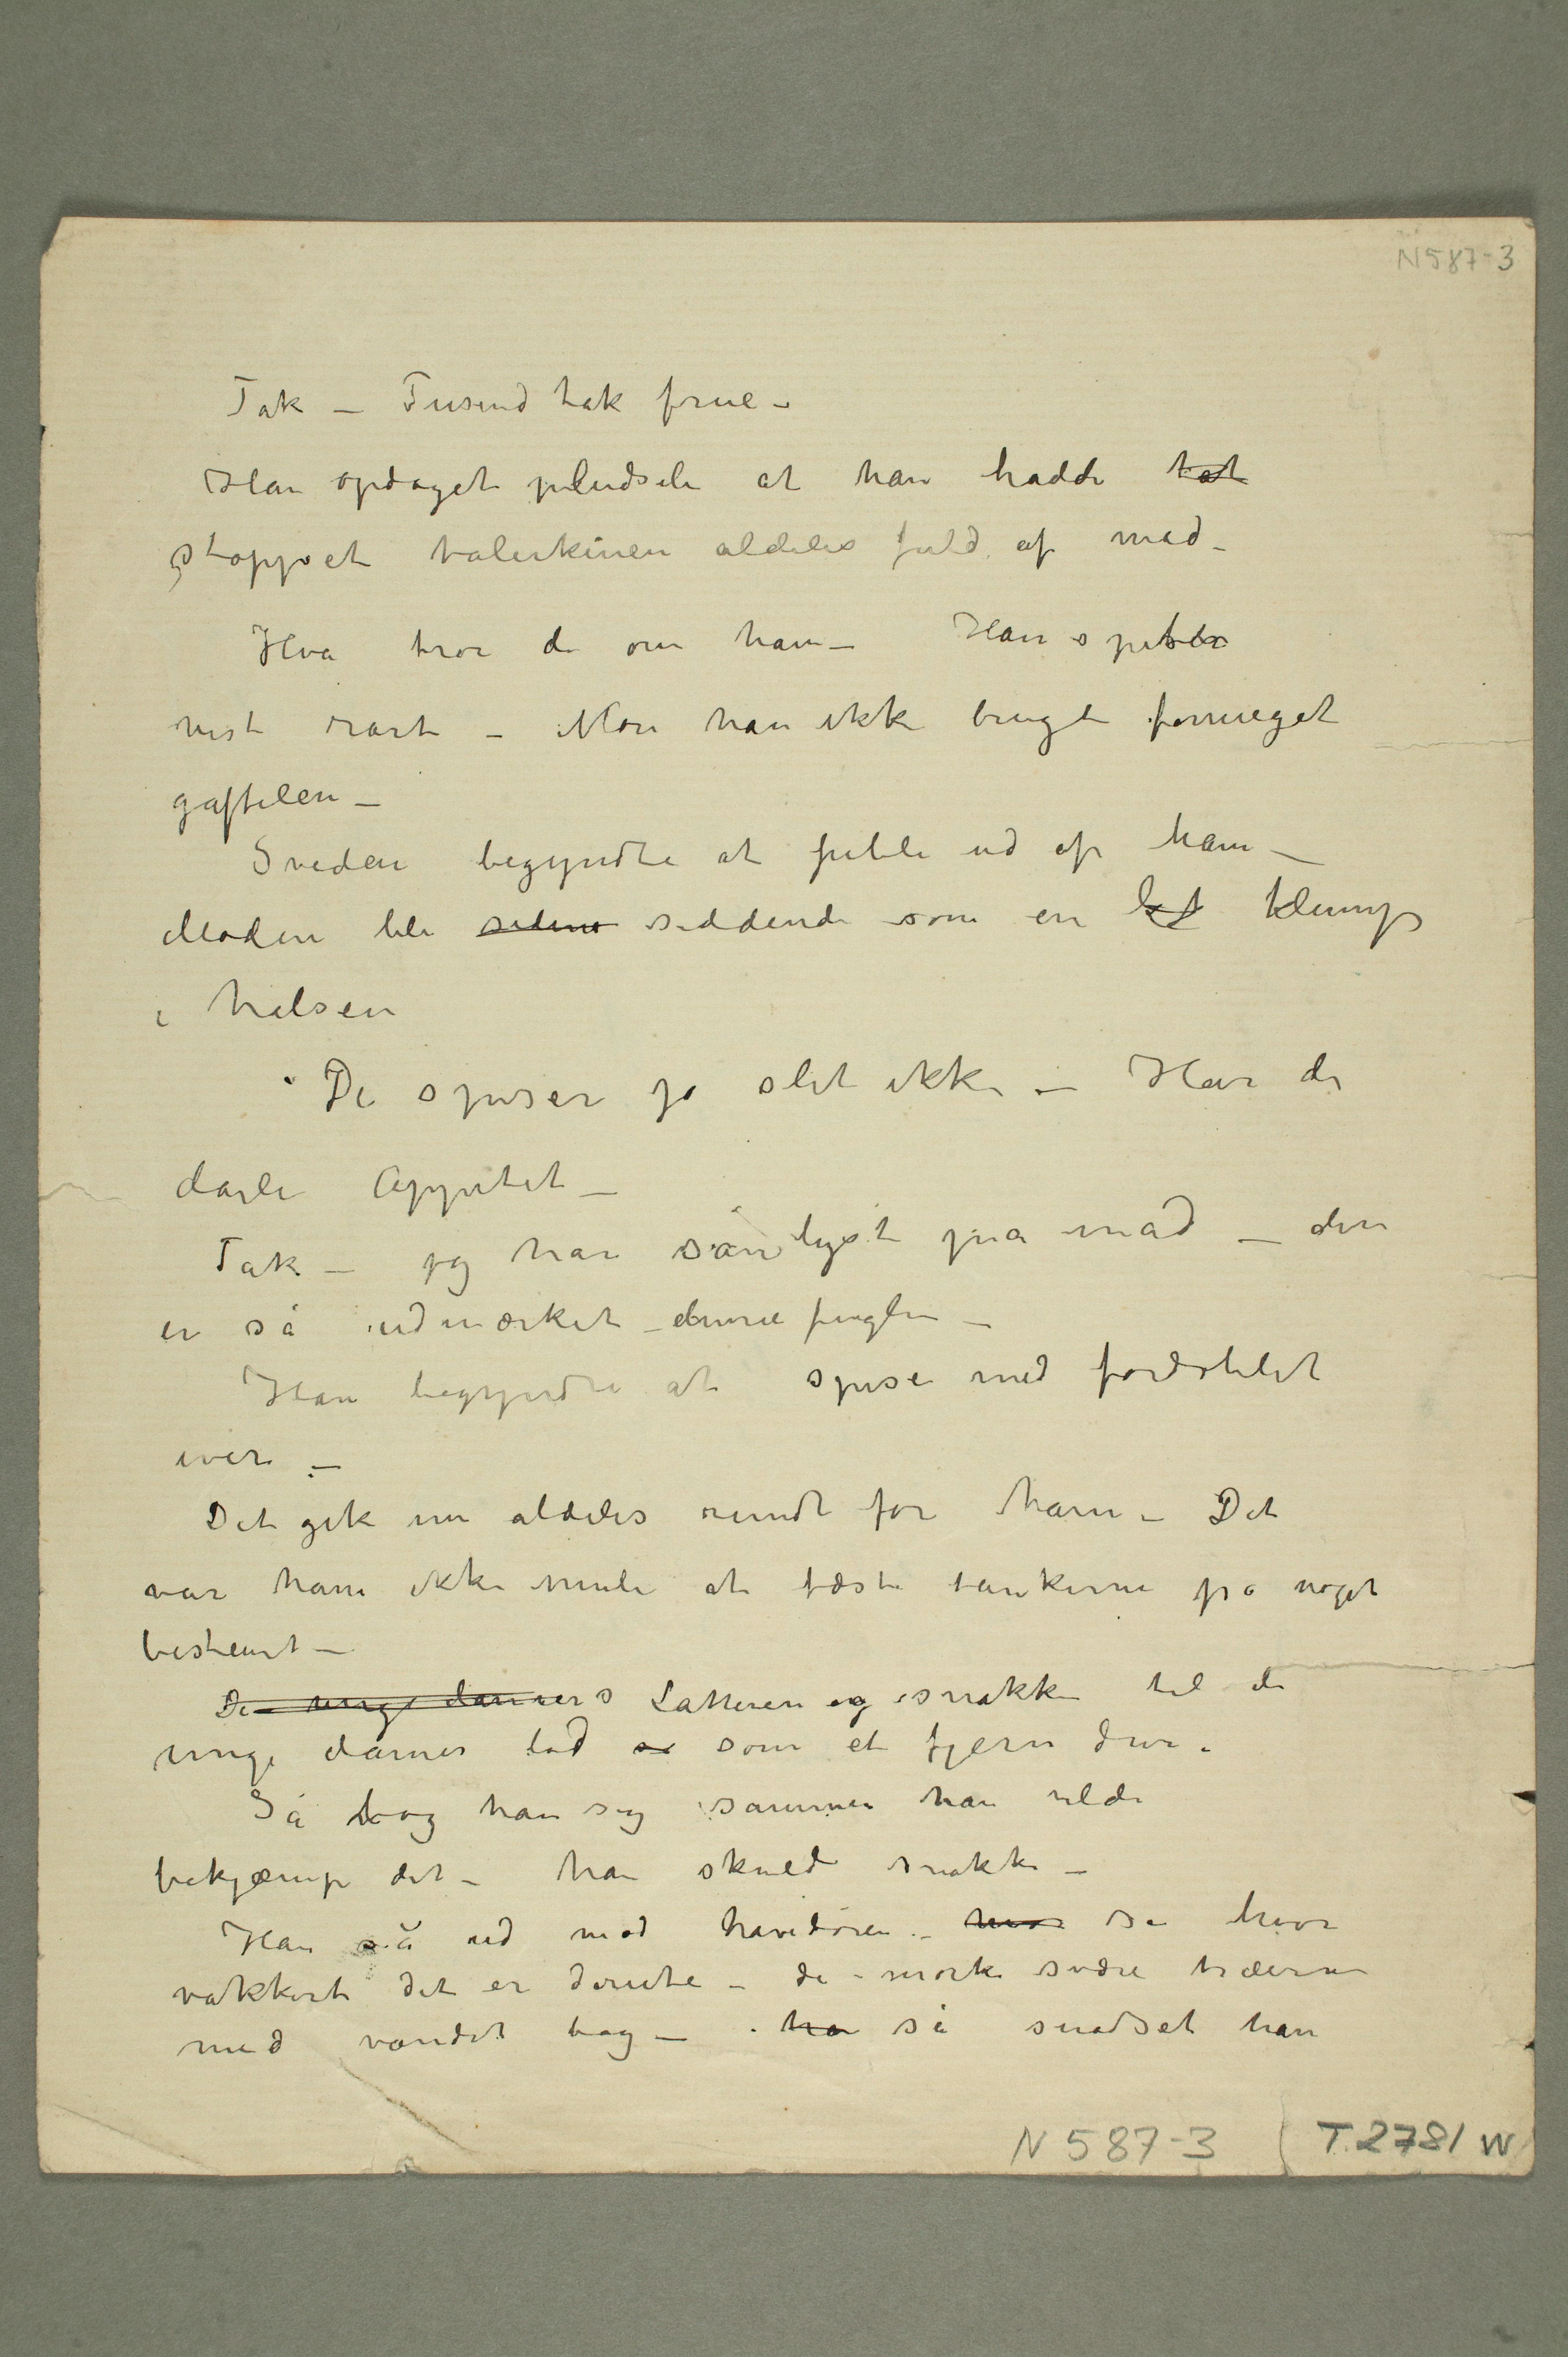 N587-3
Tak – Tusind tak frue –
Han opdaget pludseli at han hadde tat
stoppet talerkenen aldeles fuld af mad –
Hva tror de om ham – Han spiser
vist rart – Mon han ikke brugte formeget
gaffelen –
Sveden begyndte at pible ud af ham –
Maden ble sidene siddende som en let klump
i halsen
De spiser jo slet ikke – Har de
darli Appetit –
Tak – jeg har sån lyst pa mad – den
er så udmærket denne fuglen –
Han begyndte at spise med fordoblet
iver –
Det gik nu aldeles rundt for ham – Det
var ham ikke muli at fæste tankerne på noget
bestemt –
De unge damers Latteren og snakken til de
unge damer lød so som et fjern dur.
Så tog han sig sammen han vilde
bekjæmpe det – han skulde snakke –
Han så ud mod havedøren – hvor se hvor
vakkert det er derute – de mørke svære trærne
med vandet bag – ha så snadset han
N 587-3 T.2781 W